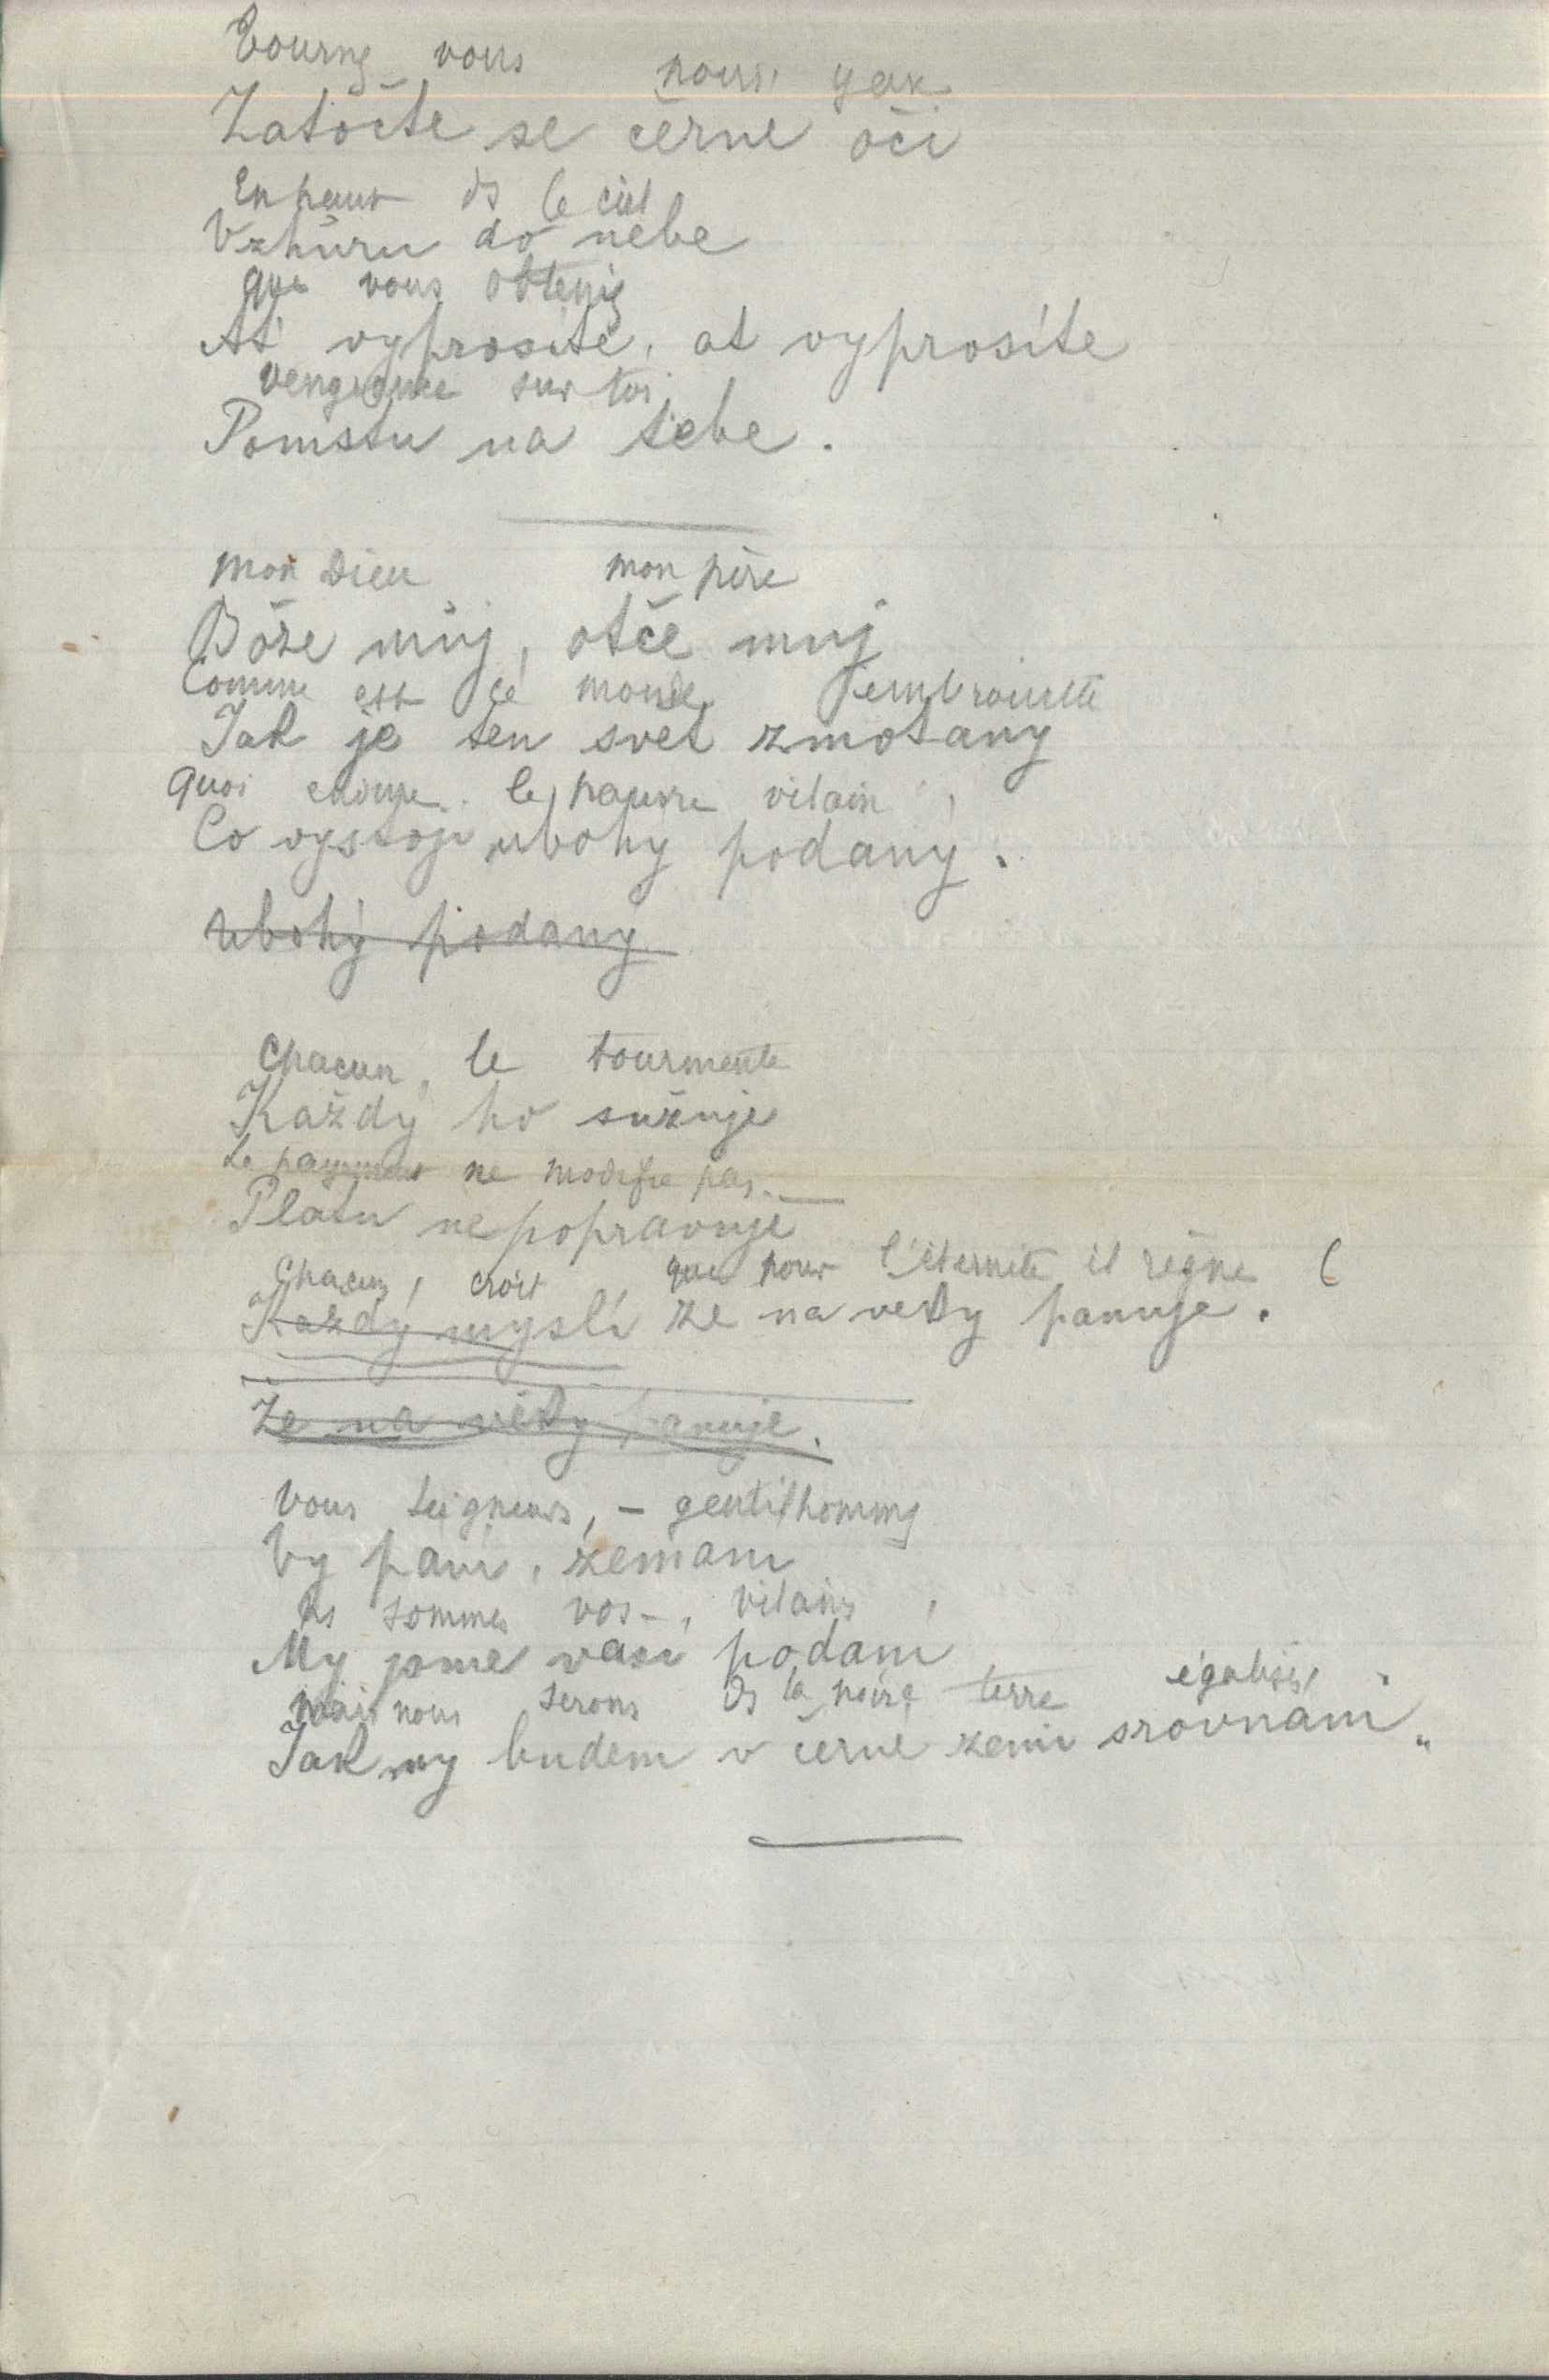 Tournez vous nous yeux
Zatočte se černe oči
En haut ds le ciel
Vzhůru do nebe
que vous obteniez
Ať vyprosíte, at vyprosíte
vengeance sur toi
Pomstu na tebe.
mon Dieu mon père
Bože můj, otče muj
Comme est ce monde embrouillé
Jak je ten svet zmotany
Quoi le pauvre vilain
Co vystoji ubohý podaný.
Ubohý podaný
Chacun, le tourmente
Každý ho sužuje
Le payement ne modifie pas.
Platu nepopravuje
Chacun, croit que pour l'éternité il règne
Každý mysli ze na veky panuje.
Že na věky panuje.
Vous Seigneurs, – gentilhommes
Vy páni, zemani
ns sommes vos –, vilains
My jsme vaši podani
mais nous serons ds la noire terre égalisés
Jak my budem v černe zemi srovnani.